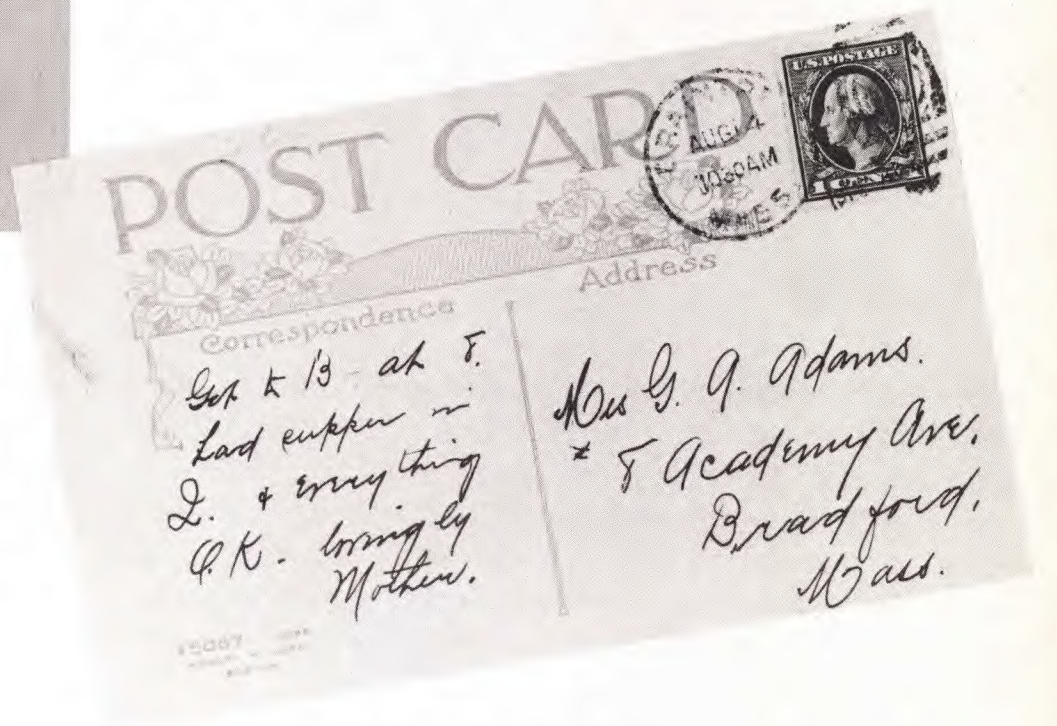 POST CARD
AUG 14
10 30 AM
U.S. POSTAGE
Correspondence
Address
Got to B - at 8.
Had supper in
Q. & everything
O.K. lovingly
Mother.
Mrs G. A. Adams.
8 Academy Ave.
Bradford,
Mass.